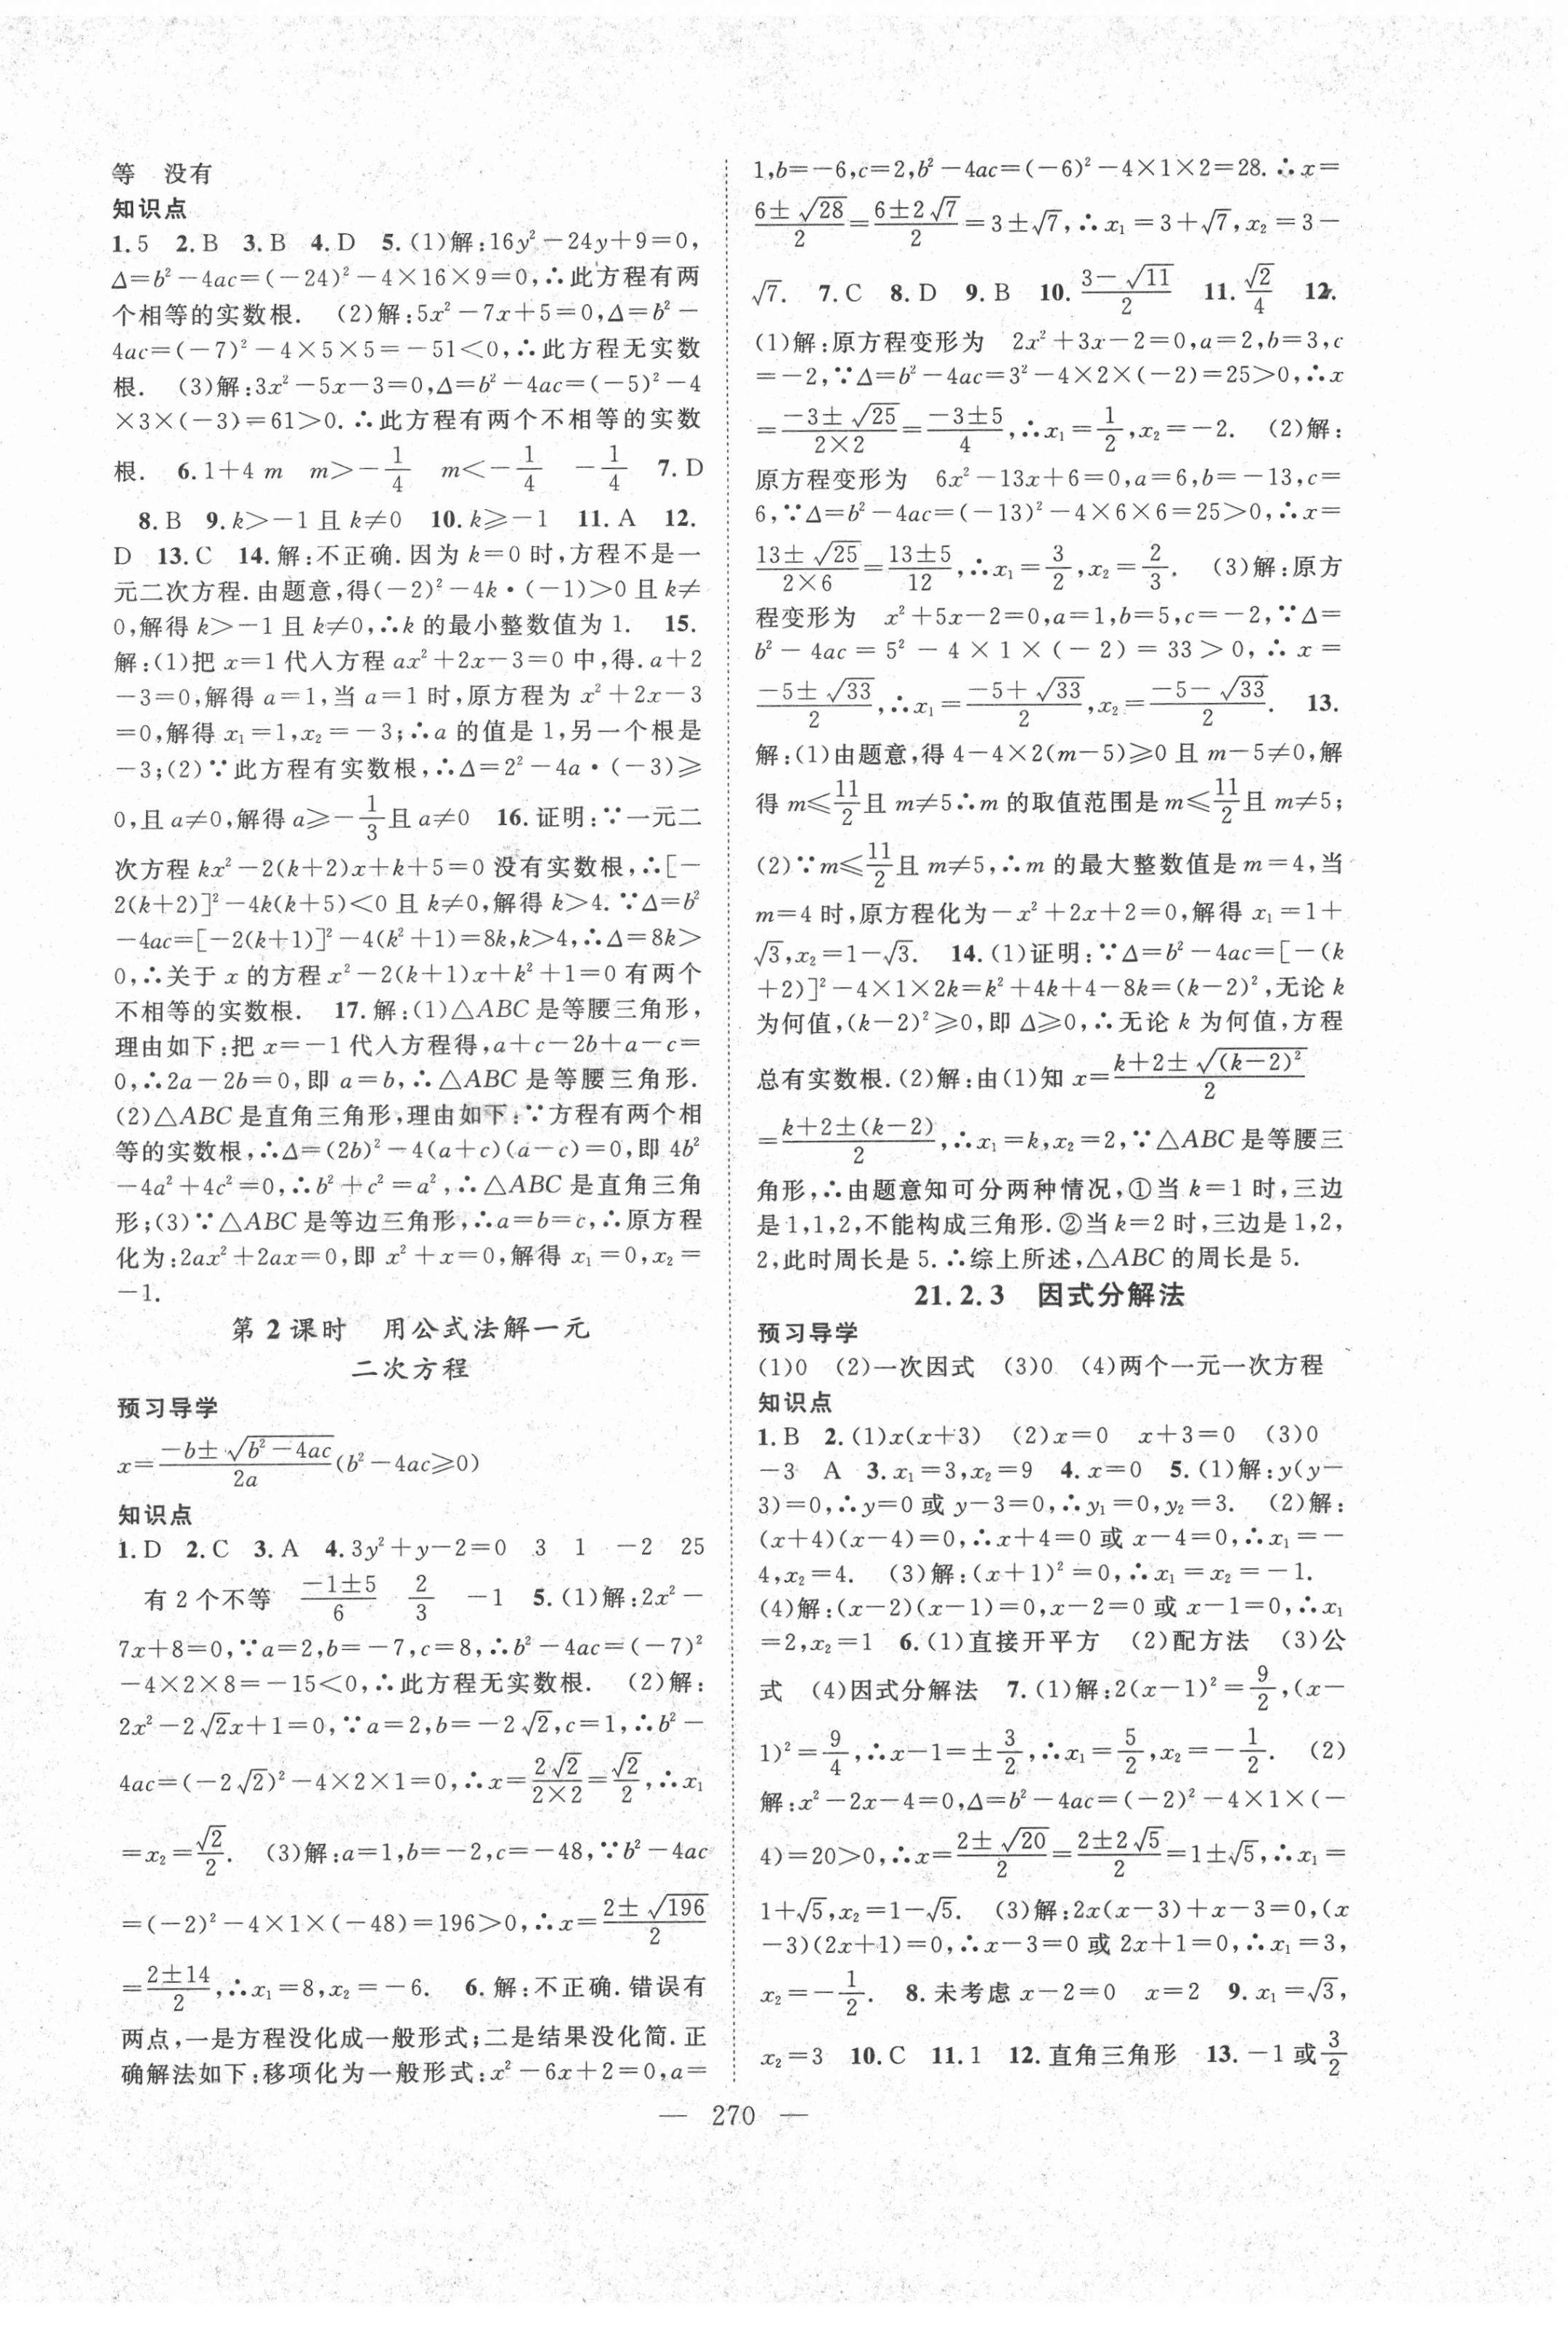 等　没有
知识点
1.5　2.B　3.B　4.D　5.(1)解:16y²－24y＋9＝0,
Δ＝b²－4ac＝(－24)²－4×16×9＝0,∴此方程有两
个相等的实数根.　(2)解:5x²－7x＋5＝0,Δ＝b²－
4ac＝(－7)²－4×5×5＝－51＜0,∴此方程无实数
根.　(3)解:3x²－5x－3＝0,Δ＝b²－4ac＝(－5)²－4
×3×(－3)＝61＞0.∴此方程有两个不相等的实数
根.　6.1＋4 m　m＞－1/4　m＜－1/4　－1/4　7.D
8.B　9.k＞－1 且 k≠0　10.k≥－1　11.A　12.
D　13.C　14.解:不正确.因为 k＝0 时,方程不是一
元二次方程.由题意,得(－2)²－4k·(－1)＞0 且 k≠
0,解得 k＞－1 且 k≠0,∴k 的最小整数值为 1.　15.
解:(1)把 x＝1 代入方程 ax²＋2x－3＝0 中,得.a＋2
－3＝0,解得 a＝1,当 a＝1 时,原方程为 x²＋2x－3
＝0,解得 x₁＝1,x₂＝－3;∴a 的值是 1,另一个根是
－3;(2)∵此方程有实数根,∴Δ＝2²－4a·(－3)≥
0,且 a≠0,解得 a≥－1/3且 a≠0　16.证明:∵一元二
次方程 kx²－2(k＋2)x＋k＋5＝0 没有实数根,∴[－
2(k＋2)]²－4k(k＋5)＜0 且 k≠0,解得 k＞4.∵Δ＝b²
－4ac＝[－2(k＋1)]²－4(k²＋1)＝8k,k＞4,∴Δ＝8k＞
0,∴关于 x 的方程 x²－2(k＋1)x＋k²＋1＝0 有两个
不相等的实数根.　17.解:(1)△ABC 是等腰三角形,
理由如下:把 x＝－1 代入方程得,a＋c－2b＋a－c＝
0,∴2a－2b＝0,即 a＝b,∴△ABC 是等腰三角形.
(2)△ABC 是直角三角形,理由如下:∵方程有两个相
等的实数根,∴Δ＝(2b)²－4(a＋c)(a－c)＝0,即 4b²
－4a²＋4c²＝0,∴b²＋c²＝a²,∴△ABC 是直角三角
形;(3)∵△ABC 是等边三角形,∴a＝b＝c,∴原方程
化为:2ax²＋2ax＝0,即 x²＋x＝0,解得 x₁＝0,x₂＝
－1.
第 2 课时　用公式法解一元
二次方程
预习导学
x＝(－b±√(b²－4ac))/2a(b²－4ac≥0)
知识点
1.D　2.C　3.A　4.3y²＋y－2＝0　3　1　－2　25
有 2 个不等　(－1±5)/6　2/3　－1　5.(1)解:2x²－
7x＋8＝0,∵a＝2,b＝－7,c＝8,∴b²－4ac＝(－7)²
－4×2×8＝－15＜0,∴此方程无实数根.　(2)解:
2x²－2√2x＋1＝0,∵a＝2,b＝－2√2,c＝1,∴b²－
4ac＝(－2√2)²－4×2×1＝0,∴x＝2√2/(2×2)＝√2/2,∴x₁
＝x₂＝√2/2.　(3)解:a＝1,b＝－2,c＝－48,∵b²－4ac
＝(－2)²－4×1×(－48)＝196＞0,∴x＝(2±√196)/2
＝(2±14)/2,∴x₁＝8,x₂＝－6.　6.解:不正确.错误有
两点,一是方程没化成一般形式;二是结果没化简.正
确解法如下:移项化为一般形式:x²－6x＋2＝0,a＝
1,b＝－6,c＝2,b²－4ac＝(－6)²－4×1×2＝28.∴x＝
(6±√28)/2＝(6±2√7)/2＝3±√7,∴x₁＝3＋√7,x₂＝3－
√7.　7.C　8.D　9.B　10.(3－√11)/2　11.√2/4　12.
(1)解:原方程变形为　2x²＋3x－2＝0,a＝2,b＝3,c
＝－2,∵Δ＝b²－4ac＝3²－4×2×(－2)＝25＞0,∴x
＝(－3±√25)/(2×2)＝(－3±5)/4,∴x₁＝1/2,x₂＝－2.　(2)解:
原方程变形为　6x²－13x＋6＝0,a＝6,b＝－13,c＝
6,∵Δ＝b²－4ac＝(－13)²－4×6×6＝25＞0,∴x＝
(13±√25)/(2×6)＝(13±5)/12,∴x₁＝3/2,x₂＝2/3.　(3)解:原方
程变形为　x²＋5x－2＝0,a＝1,b＝5,c＝－2,∵Δ＝
b²－4ac＝5²－4×1×(－2)＝33＞0,∴x＝
(－5±√33)/2,∴x₁＝(－5＋√33)/2,x₂＝(－5－√33)/2.　13.
解:(1)由题意,得 4－4×2(m－5)≥0 且 m－5≠0,解
得 m≤11/2且 m≠5∴m 的取值范围是 m≤11/2且 m≠5;
(2)∵m≤11/2且 m≠5,∴m 的最大整数值是 m＝4,当
m＝4 时,原方程化为－x²＋2x＋2＝0,解得 x₁＝1＋
√3,x₂＝1－√3.　14.(1)证明:∵Δ＝b²－4ac＝[－(k
＋2)]²－4×1×2k＝k²＋4k＋4－8k＝(k－2)²,无论 k
为何值,(k－2)²≥0,即 Δ≥0,∴无论 k 为何值,方程
总有实数根.(2)解:由(1)知 x＝(k＋2±√(k－2)²)/2
＝(k＋2±(k－2))/2,∴x₁＝k,x₂＝2,∵△ABC 是等腰三
角形,∴由题意知可分两种情况,①当 k＝1 时,三边
是 1,1,2,不能构成三角形.②当 k＝2 时,三边是 1,2,
2,此时周长是 5.∴综上所述,△ABC 的周长是 5.
21.2.3　因式分解法
预习导学
(1)0　(2)一次因式　(3)0　(4)两个一元一次方程
知识点
1.B　2.(1)x(x＋3)　(2)x＝0　x＋3＝0　(3)0
－3　A　3.x₁＝3,x₂＝9　4.x＝0　5.(1)解:y(y－
3)＝0,∴y＝0 或 y－3＝0,∴y₁＝0,y₂＝3.　(2)解:
(x＋4)(x－4)＝0,∴x＋4＝0 或 x－4＝0,∴x₁＝－
4,x₂＝4.　(3)解:(x＋1)²＝0,∴x₁＝x₂＝－1.
(4)解:(x－2)(x－1)＝0,x－2＝0 或 x－1＝0,∴x₁
＝2,x₂＝1　6.(1)直接开平方　(2)配方法　(3)公
式　(4)因式分解法　7.(1)解:2(x－1)²＝9/2,(x－
1)²＝9/4,∴x－1＝±3/2,∴x₁＝5/2,x₂＝－1/2.　(2)
解:x²－2x－4＝0,Δ＝b²－4ac＝(－2)²－4×1×(－
4)＝20＞0,∴x＝(2±√20)/2＝(2±2√5)/2＝1±√5,∴x₁＝
1＋√5,x₂＝1－√5.　(3)解:2x(x－3)＋x－3＝0,(x
－3)(2x＋1)＝0,∴x－3＝0 或 2x＋1＝0,∴x₁＝3,
x₂＝－1/2.　8.未考虑 x－2＝0　x＝2　9.x₁＝√3,
x₂＝3　10.C　11.1　12.直角三角形　13.－1 或3/2
— 270 —